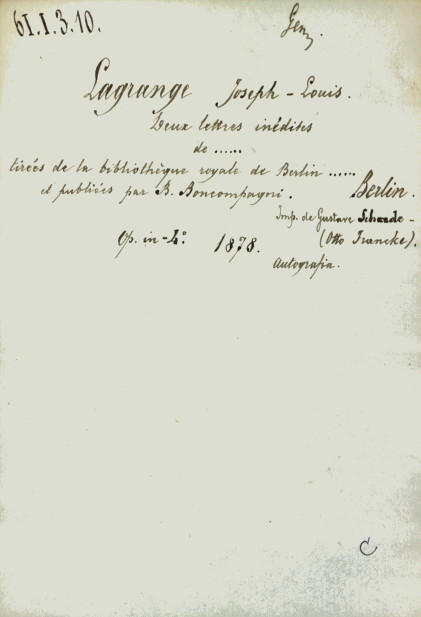 61.1.3.10.
Gen.
Lagrange Joseph-Louis.
Deux lettres inédites
de ......
tirées de la bibliothèque royale de Berlin ......
et publiées par B. Boncompagni. Berlin.
Imp. de Gustave Schade-
(Otto Francke).
Op. in-4.° 1878.
Autografia.
C